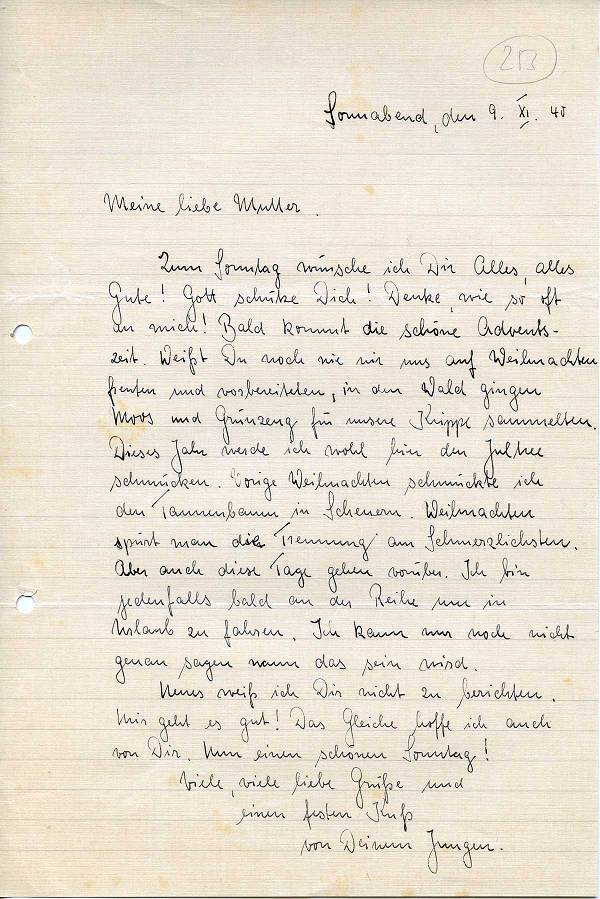 213
Sonnabend, den 9. XI. 40
Meine liebe Mutter.
Zum Sonntag wünsche ich Dir Alles, alles
Gute! Gott schütze Dich! Denke, wie so oft
an mich! Bald kommt die schöne Advents-
zeit. Weißt Du noch wie wir uns auf Weihnachten
freuten und vorbereiteten, in den Wald gingen
Moos und Grünzeug für unsere Krippe sammelten.
Dieses Jahr werde ich wohl hier den Jultree
schmücken. Vorige Weihnachten schmückte ich
den Tannenbaum in Scheuern. Weihnachten
spürt man die Trennung am Schmerzlichsten.
Aber auch diese Tage gehen vorüber. Ich bin
jedenfalls bald an der Reihe um in
Urlaub zu fahren. Ich kann nur noch nicht
genau sagen wann das sein wird.
Neues weiß ich Dir nicht zu berichten.
Mir geht es gut! Das Gleiche hoffe ich auch
von Dir. Nun einen schönen Sonntag!
Viele, viele liebe Grüße und
einen festen Kuß
von Deinem Jungen.